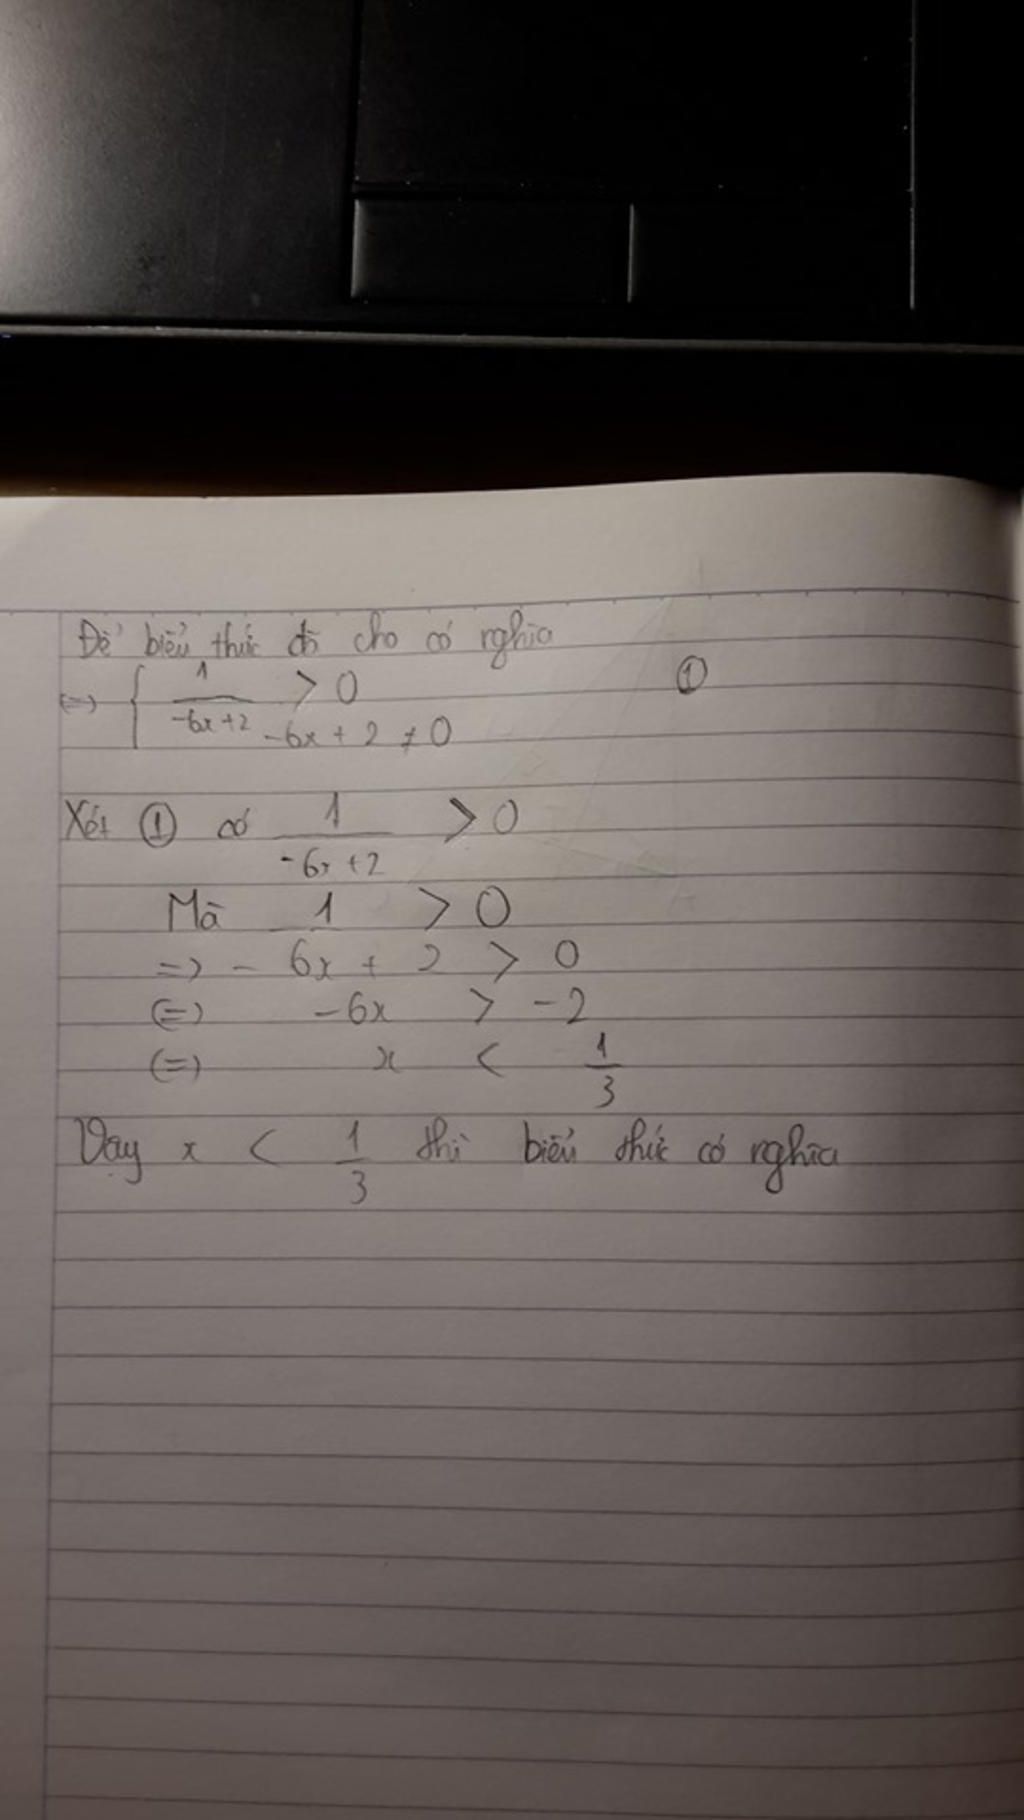 Để biểu thức đã cho có nghĩa
<=> { 1/(-6x+2) > 0 ①
-6x + 2 ≠ 0
Xét ① có 1/(-6x+2) > 0
Mà 1 > 0
=> -6x + 2 > 0
<=> -6x > -2
<=> x < 1/3
Vậy x < 1/3 thì biểu thức có nghĩa